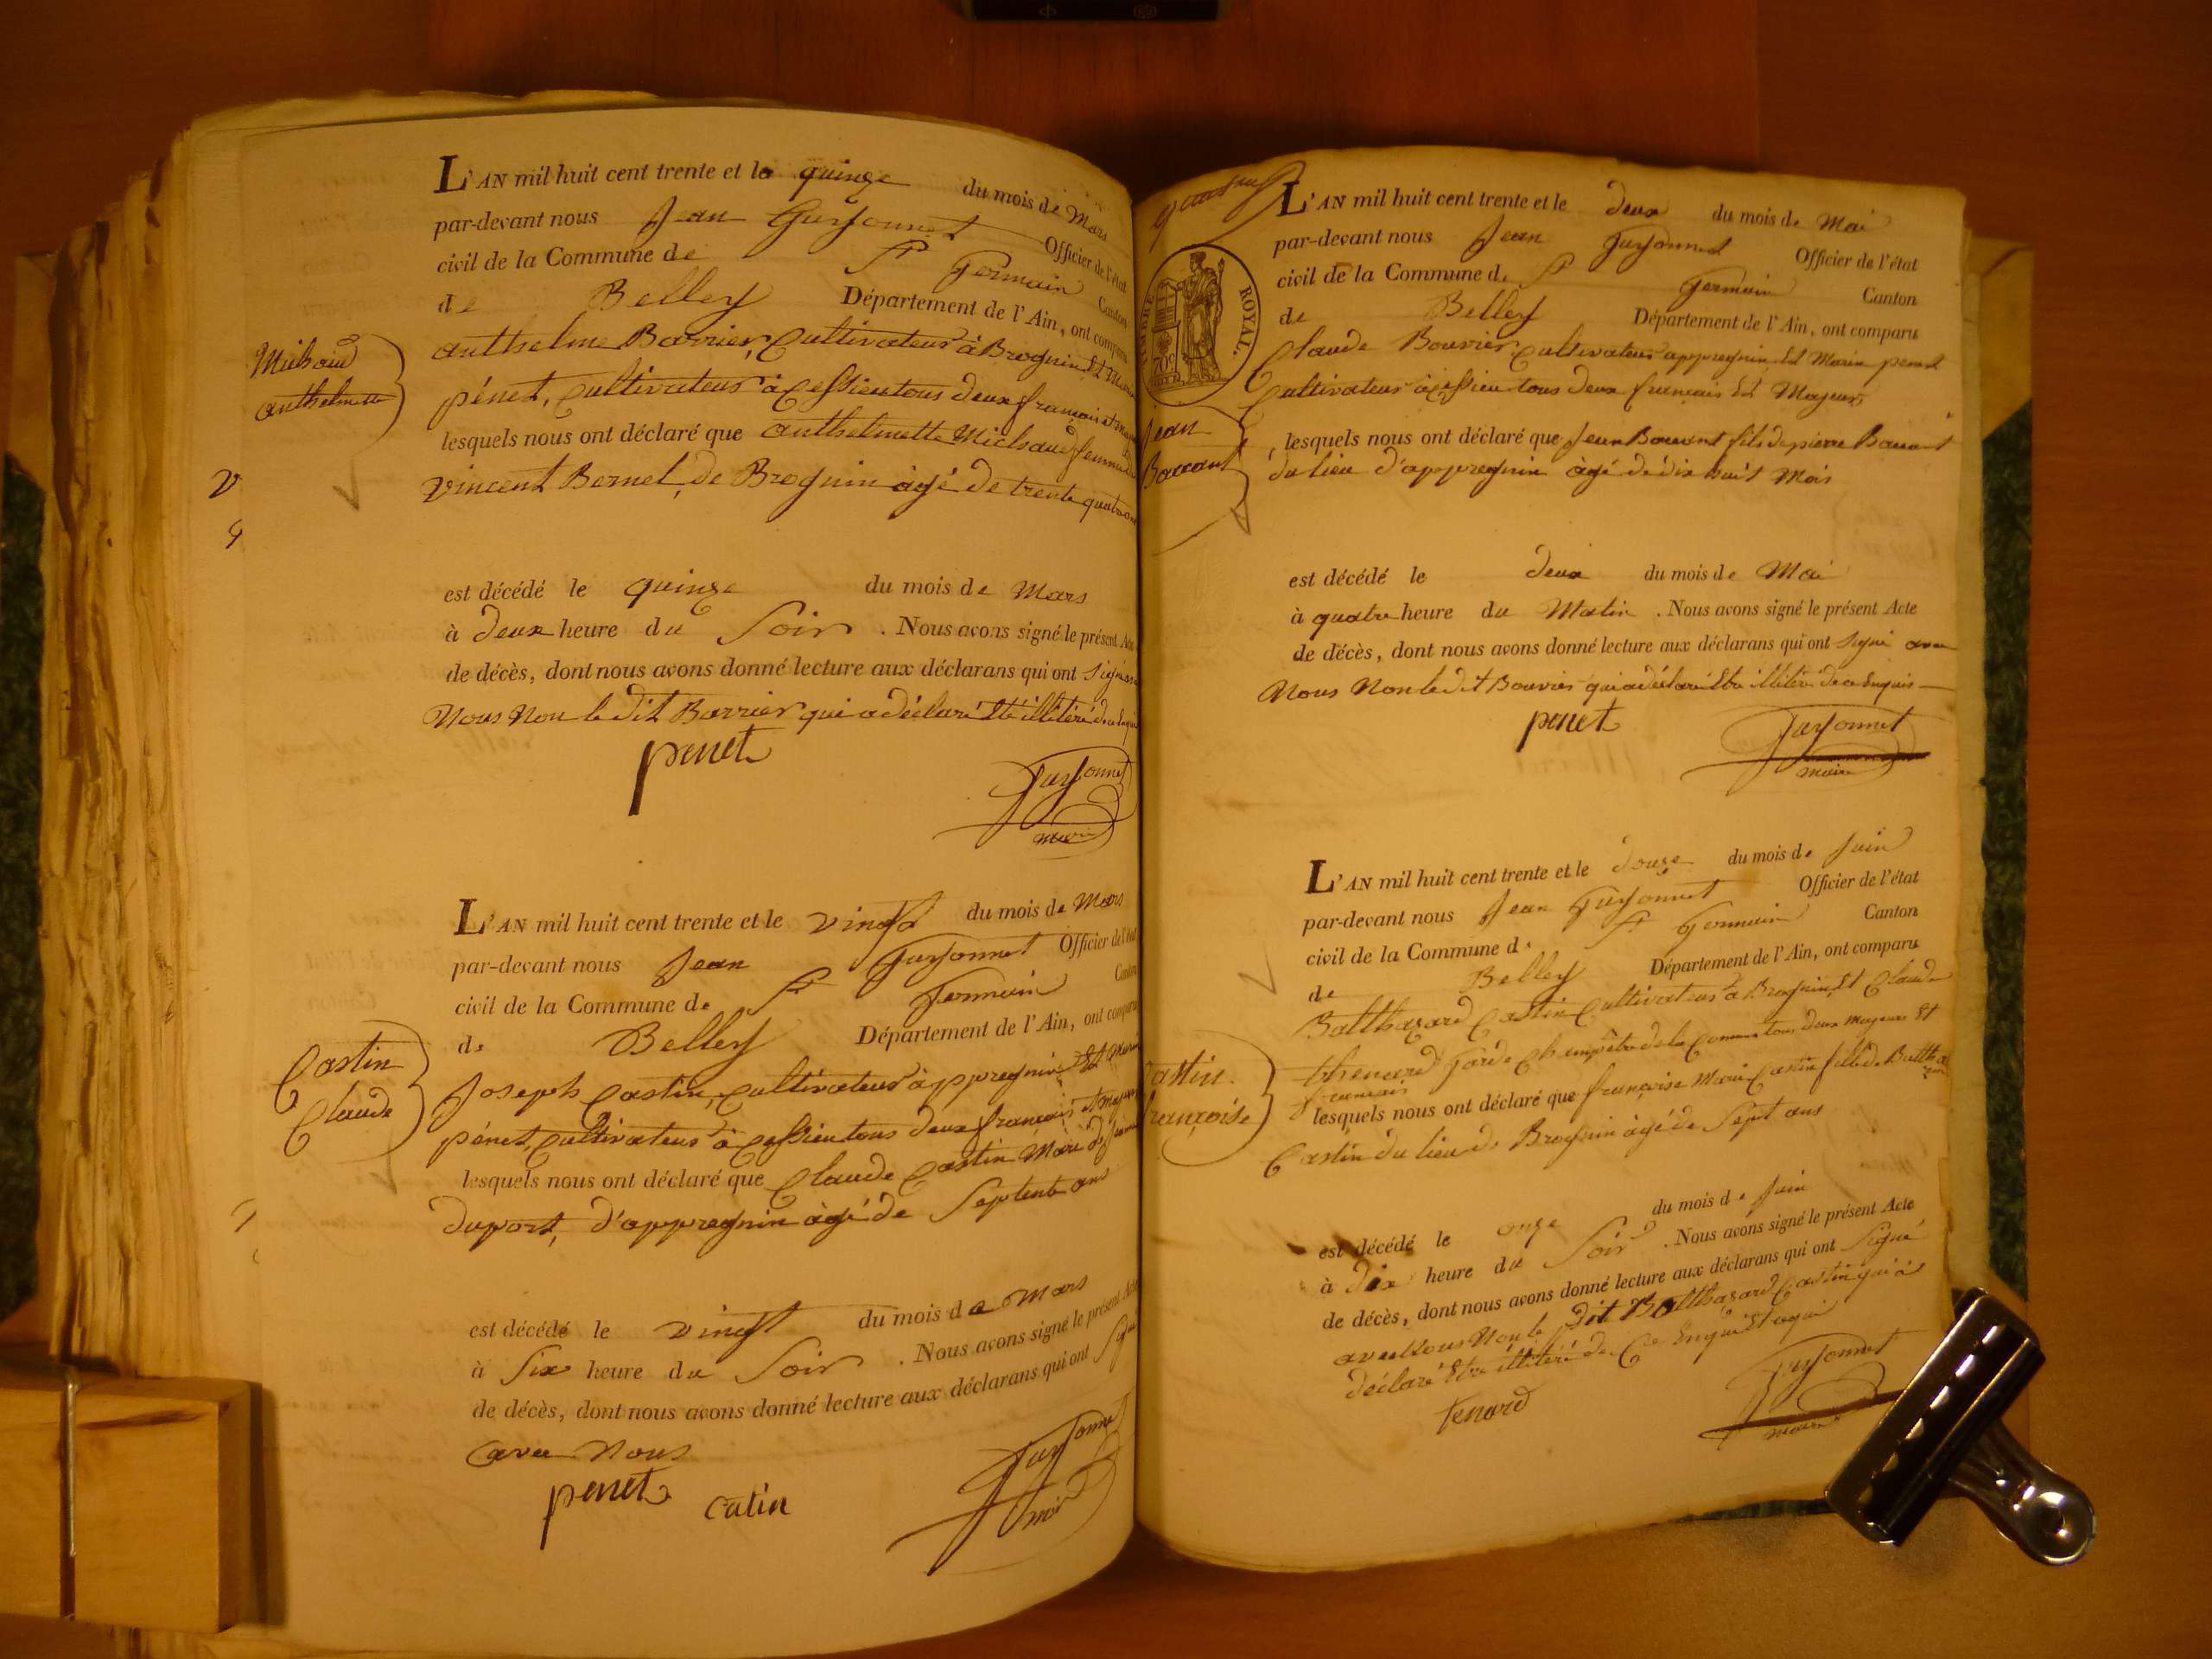 L'AN mil huit cent trente et le quinze du mois de Mars
par-devant nous Jean Guyonnet Officier de l'état
civil de la Commune de St Germain Canton
de Belley Département de l'Ain, ont comparu
anthelme Barrier, Cultivateur à Brognin Et
pénet, Cultivateur à Cessieu tous deux français et
lesquels nous ont déclaré que anthelmette Michaud femme
vincent Bernel, de Brognin âgé de trente quatre
Michaud
anthelmette
est décédé le quinze du mois de Mars
à deux heure du Soir. Nous avons signé le présent Acte
de décès, dont nous avons donné lecture aux déclarans qui ont signé
Nous Non le dit Barrier qui a déclaré Etre illitéré de ce
penet
maire
L'AN mil huit cent trente et le vingt du mois de Mars
par-devant nous Jean Guyonnet Officier de l'état
civil de la Commune de St Germain Canton
de Belley Département de l'Ain, ont comparu
Joseph Castin, Cultivateur à appregnin Et Marin
pénet, Cultivateur à Cessieu tous deux français et majeurs
lesquels nous ont déclaré que Claude Castin Mari de
duport, d'appregnin âgé de Septente ans
Castin
Claude
est décédé le vingt du mois de Mars
à Six heure du Soir. Nous avons signé le présent Acte
de décès, dont nous avons donné lecture aux déclarans qui ont Signé
avec Nous
penet catin
L'AN mil huit cent trente et le deux du mois de Mai
par-devant nous Jean Guyonnet Officier de l'état
civil de la Commune de St Germain Canton
de Belley Département de l'Ain, ont comparu
Claude Bouvier Cultivateur appregnin Et Marin penet
Cultivateur à Cessieu tous deux français Et Majeurs
lesquels nous ont déclaré que Jean fils de pierre
du lieu d'appregnin âgé de dix huit Mois
TIMBRE ROYAL.
70c
Jean
est décédé le deux du mois de Mai
à quatre heure du Matin. Nous avons signé le présent Acte
de décès, dont nous avons donné lecture aux déclarans qui ont signé avec
Nous Non le dit Bouvier qui a déclaré Etre illitéré de ce Enquis
penet
Guyonnet
maire
L'AN mil huit cent trente et le douze du mois de Juin
par-devant nous Jean Guyonnet Officier de l'état
civil de la Commune de St Germain Canton
de Belley Département de l'Ain, ont comparu
Balthazard Castin Cultivateur à Brognin Et Claude
thenard Garde Champêtre de la Commune tous deux majeurs Et
français
lesquels nous ont déclaré que françoise Marie Castin fille de Baltha
Castin du lieu de Brognin âgé de Sept ans
Castin
françoise
est décédé le onze du mois de Juin
à dix heure du Soir. Nous avons signé le présent Acte
de décès, dont nous avons donné lecture aux déclarans qui ont Signé
avec Nous Non le dit Balthazard Castin qui a
déclaré Etre illitéré de Ce Enquis
tenard
Guyonnet
maire